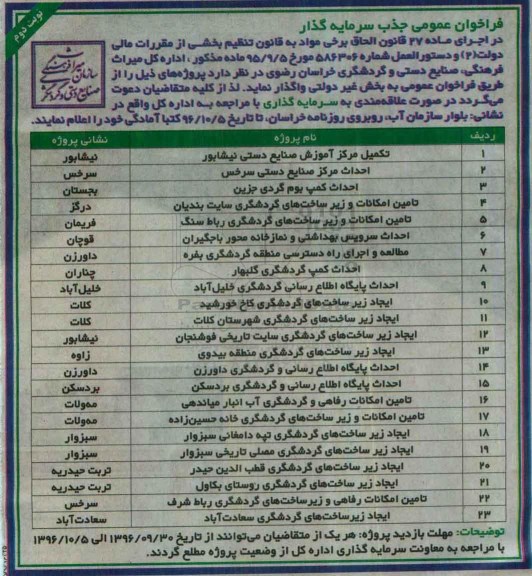 نوبت دوم
فراخوان عمومی جذب سرمایه گذار
در اجرای ماده ۲۷ قانون الحاق برخی مواد به قانون تنظیم بخشی از مقررات مالی
دولت(۲) و دستورالعمل شماره ۵۸۶۳۰۶ مورخ ۹۵/۹/۵ ماده مذکور، اداره کل میراث
فرهنگی، صنایع دستی و گردشگری خراسان رضوی در نظر دارد پروژه‌های ذیل را از
طریق فراخوان عمومی به بخش غیر دولتی واگذار نماید. لذا از کلیه متقاضیان دعوت
می‌گردد در صورت علاقمندی به سرمایه گذاری با مراجعه به اداره کل واقع در
نشانی: بلوار سازمان آب، روبروی روزنامه خراسان، تا تاریخ ۹۶/۱۰/۵ کتبا آمادگی خود را اعلام نمایند.
سازمان میراث فرهنگی
صنایع دستی و گردشگری
ردیف نام پروژه نشانی پروژه
۱ تکمیل مرکز آموزش صنایع دستی نیشابور نیشابور
۲ احداث مرکز صنایع دستی سرخس سرخس
۳ احداث کمپ بوم گردی جزین بجستان
۴ تامین امکانات و زیر ساخت‌های گردشگری سایت بندیان درگز
۵ تامین امکانات و زیر ساخت‌های گردشگری رباط سنگ فریمان
۶ احداث سرویس بهداشتی و نمازخانه محور باجگیران قوچان
۷ مطالعه و اجرای راه دسترسی منطقه گردشگری بفره داورزن
۸ احداث کمپ گردشگری گلبهار چناران
۹ احداث پایگاه اطلاع رسانی گردشگری خلیل‌آباد خلیل‌آباد
۱۰ ایجاد زیر ساخت‌های گردشگری کاخ خورشید کلات
۱۱ ایجاد زیر ساخت‌های گردشگری شهرستان کلات کلات
۱۲ ایجاد زیر ساخت‌های گردشگری سایت تاریخی فوشنجان نیشابور
۱۳ ایجاد زیر ساخت‌های گردشگری منطقه بیدوی زاوه
۱۴ احداث پایگاه اطلاع رسانی و گردشگری داورزن داورزن
۱۵ احداث پایگاه اطلاع رسانی و گردشگری بردسکن بردسکن
۱۶ تامین امکانات رفاهی و گردشگری آب انبار میاندهی مه‌ولات
۱۷ تامین امکانات و زیر ساخت‌های گردشگری خانه حسین‌زاده مه‌ولات
۱۸ ایجاد زیر ساخت‌های گردشگری تپه دامغانی سبزوار سبزوار
۱۹ ایجاد زیر ساخت‌های گردشگری مصلی تاریخی سبزوار سبزوار
۲۰ ایجاد زیر ساخت‌های گردشگری قطب الدین حیدر تربت حیدریه
۲۱ ایجاد زیر ساخت‌های گردشگری روستای بکاول تربت حیدریه
۲۲ تامین امکانات رفاهی و زیرساخت‌های گردشگری رباط شرف سرخس
۲۳ ایجاد زیرساخت‌های گردشگری سعادت‌آباد سعادت‌آباد
توضیحات: مهلت بازدید پروژه: هر یک از متقاضیان می‌توانند از تاریخ ۱۳۹۶/۰۹/۳۰ الی ۱۳۹۶/۱۰/۵
با مراجعه به معاونت سرمایه گذاری اداره کل از وضعیت پروژه مطلع گردند.